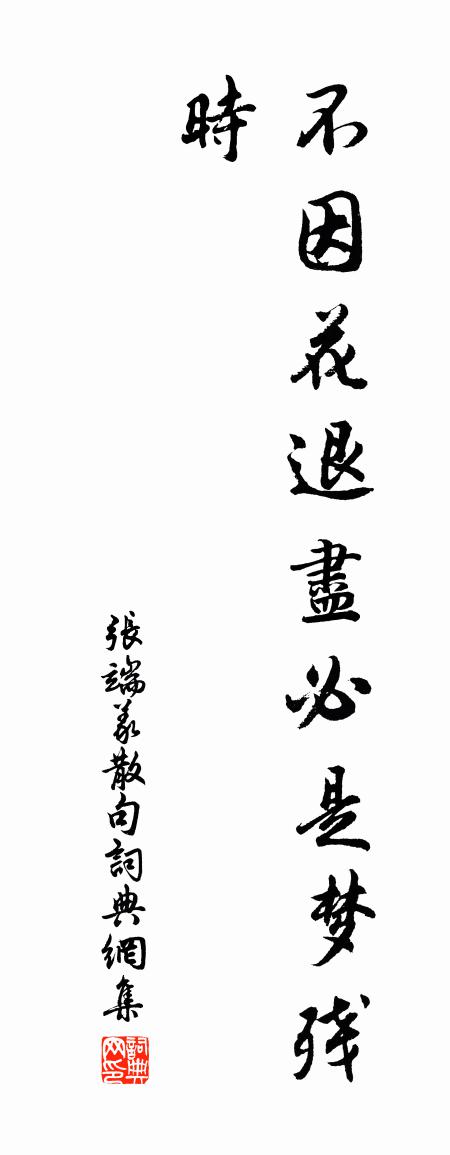 不因花退盡必是梦残
時
張端義散句詞典網集
詞典网印